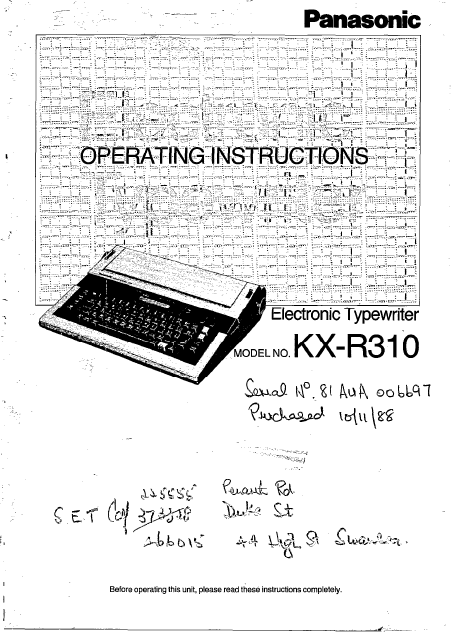 Panasonic
OPERATING INSTRUCTIONS
Electronic Typewriter
MODEL NO. KX-R310
Serial Nº. 81 AUA 006697
Purchased 10/11/88
225555 Rd
S.E.T St
266015 44 High St Swansea.
Before operating this unit, please read these instructions completely.